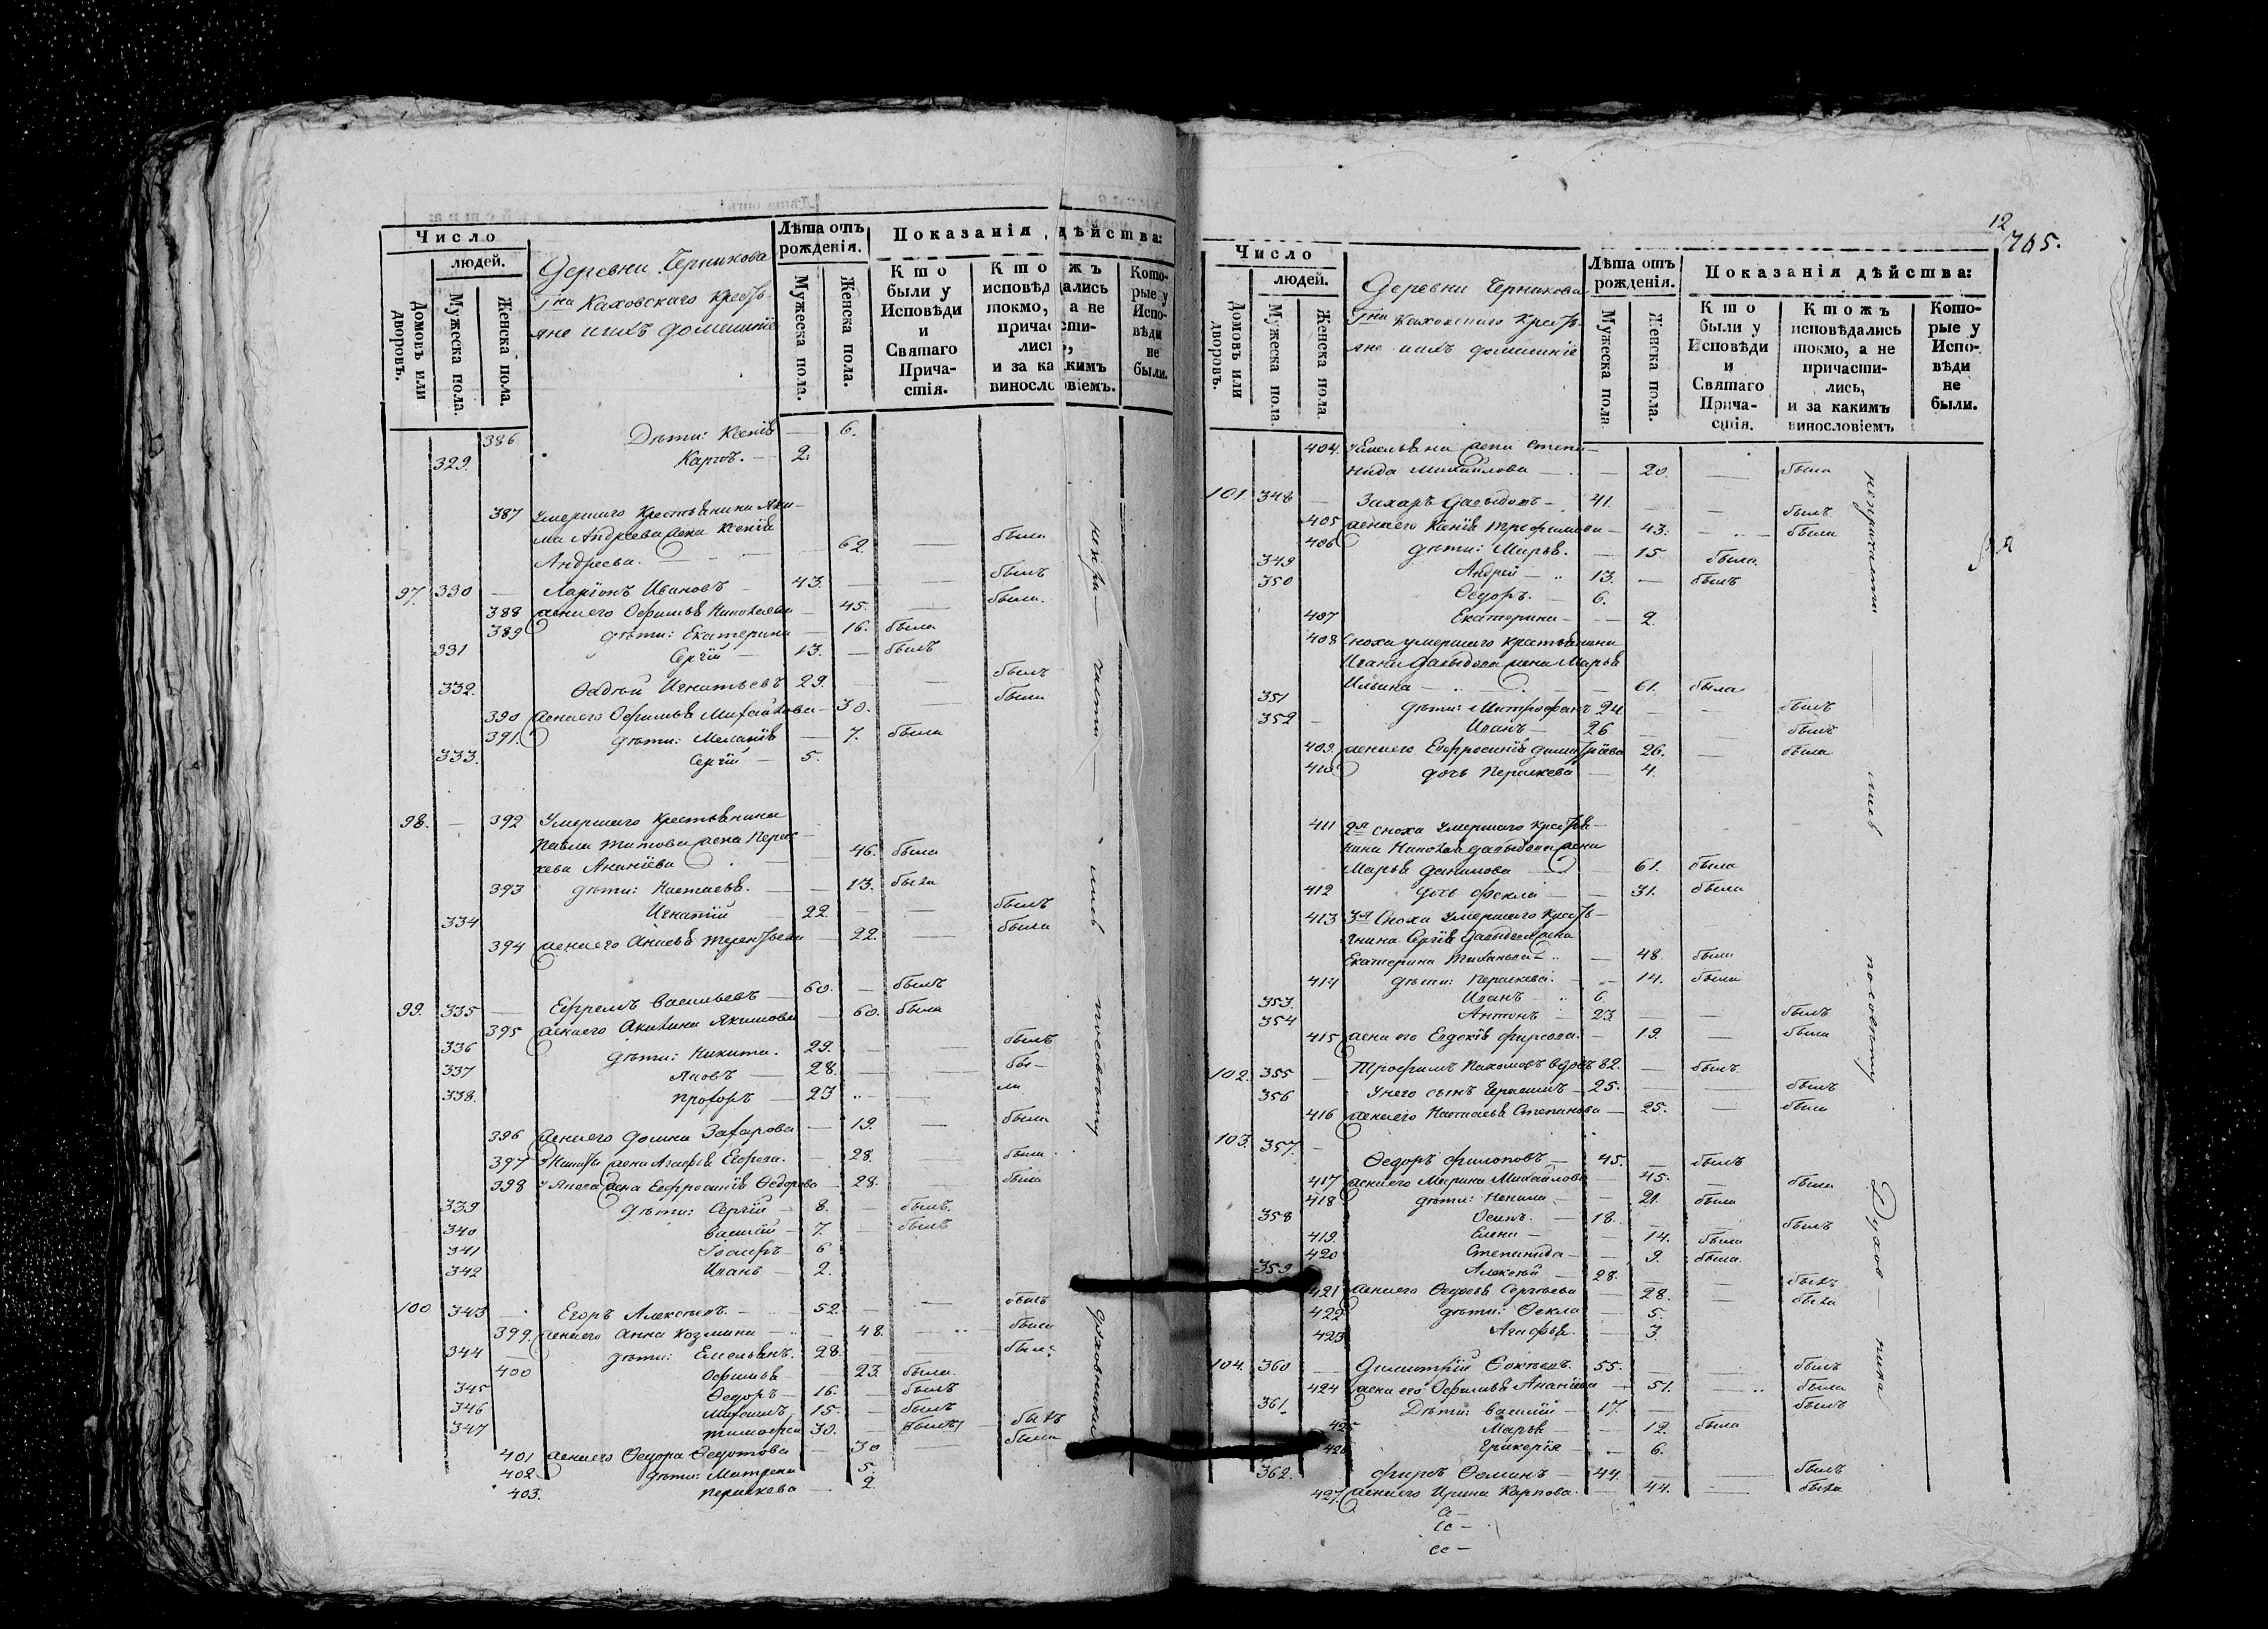 Число
людей.
Домовъ или дворовъ.
Мужеска пола.
Женска пола.
Деревни Черникова
Гна Каховскаго Кресть-
яне и ихъ домашніе
Лѣта отъ рожденія.
Мужеска пола.
Женска пола.
Показанія дѣйства:
Кто были у Исповѣди и Святаго Причастія.
Ктожъ исповѣдались токмо, а не причастились, и за какимъ винословіемъ.
Которые у Исповѣди не были.
386 Дѣти: Ксенія — 6.
329. Карпъ. — 2.
387 Умершаго Крестьянина Яки-
ма Андреева жена Ксенія
Андреева. — 62 — была
97. 330 — Ларіонъ Ивановъ — 43. — — былъ
388 жена его Ефимья Николаева — 45. — была.
389 дѣти: Екатерина — 16. была
331 Сергій — 13. — былъ
332. Фадѣй Игнатьевъ 29. — — былъ
390 жена его Ефимья Михайлова — 30. — была
391. дѣти: Меланія — 7. была
333. Сергій — 5.
98. — 392 Умершаго Крестьянина
Павла Титова жена Парас-
кева Ананіева — 46. была
393 дѣти: Настасья. — — 13. была
334 Игнатій 22. — — былъ
394 жена его Анисья Терентьева — 22. — была
99. 335 — Ефремъ Васильевъ — 60. — былъ
395 жена его Акилина Якимова — 60. была
336 дѣти: Никита. 29. — — былъ
337 Яковъ — 28. — — бы-
338. Прохоръ — 23 — ли
396 жена его Домна Захарова — 19. — была
397 У Никиты жена Агафья Егорова. — 28. — была.
398 У Якова жена Евфросинія Ѳедорова — 28. — была
339 Дѣти: Сергій — 8. — былъ.
340 Василій — 7. — былъ
341 6
342 Иванъ — 2.
100 343 — Егоръ Алексѣевъ. — 52. — — былъ
399. жена его Анна Козмина — — 48. — была
344 — дѣти: Емельянъ. 28. — былъ
400 Ефимья — 23. была.
345 Ѳедоръ — 16. — былъ
346 Михаилъ. 15. — былъ
347 Тимофей 30. — былъ — былъ
401 жена его Ѳедора Ѳедотова — 30 — была
402 дѣти: Матрена 5.
403. Параскева — 2.
непричастились по совѣту Духовника
12
765.
Число
людей.
Домовъ или дворовъ.
Мужеска пола
Женска пола
Деревни Черникова
Гна Каховскаго Кресть-
яне и ихъ домашніе
Лѣта отъ рожденія.
Мужеска пола
Женска пола.
Показанія дѣйства:
Кто были у Исповѣди и Святаго Причастія.
Ктожъ исповѣдались токмо, а не причастились, и за какимъ винословіемъ
Которые у Исповѣди не были.
404. У Емельяна жена Степа-
нида Михайлова — — 20. — была
101. 348 — Захаръ Давыдовъ — 41. — — былъ
405 жена его Ксенія Трофимова — 43. — была
406 дѣти: Марья. — 15. была.
349 Андрей — 13. — былъ
350 Ѳедоръ. — 6.
407 Екатерина — — 2.
408 Сноха умершаго Крестьянина
Ивана Давыдова жена Марья
Ильина — — 61. была
351 дѣти: Митрофанъ 24. — — былъ
352 — Иванъ — 26 — — былъ
409. жена его Евфросинія Димитріева 26. — была
410 дочь Параскева — 4.
411 2я Сноха Умершаго Крестья-
нина Николая Давыдова жена
Марья Данилова — 61. была
412 дочь Фекла — — 31. была
413 3я Сноха Умершаго Кресть-
янина Сергія Давыдова жена
Екатерина — 48. была
414 дѣти: Параскева. — 14. была
353. Иванъ — 6.
354 Антонъ 23 — — былъ
415 жена его Евдокія Фирсова. — 19. — была
102. 355 — Трофимъ Пахомовъ вдовъ 82. — былъ
356 У него сынъ Герасимъ — 25. — — былъ
416 жена его Настасья Степанова — 25. — была
103. 357. — Ѳедоръ Филиповъ — 45. — былъ
417 жена его Марина Михайлова 45. — была
418 дѣти: Ненила — — 21. была
358 Осипъ. — 18. — — былъ
419. Елена — — 14. была
420 Степанида — — 9. была.
359 Алексѣй — 28. — — былъ
421 жена его Ѳедосья Сергѣева — 28. — была
422 дѣти: Ѳекла — 5.
423 Агафья. — 3.
104. 360 — Димитрій 55. — — былъ
424 жена его Ефимья Ананіева — 51. — была
361. Дѣти: Василій — 17. — — былъ
425 Марья — — 12. была
426 — 6.
362. Фирсъ — 44. — — былъ
427. жена его Ирина Карпова. — 44. — была
непричастились по совѣту Духовника